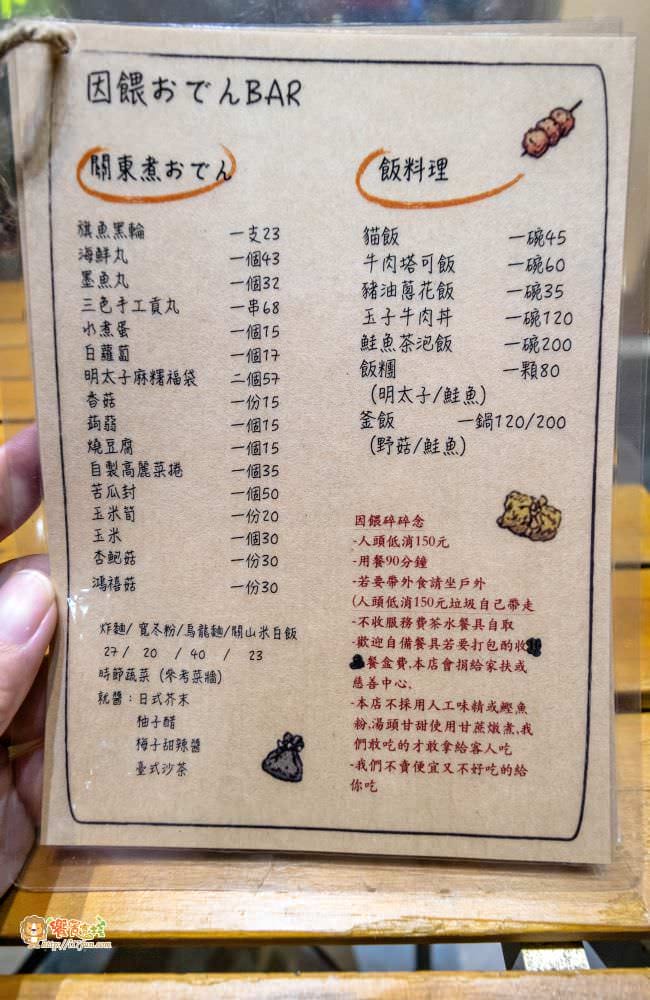 因餵おでんBAR
關東煮おでん
旗魚黑輪 一支23
海鮮丸 一個43
墨魚丸 一個32
三色手工貢丸 一串68
水煮蛋 一個15
白蘿蔔 一個17
明太子麻糬福袋 二個57
香菇 一份15
蒟蒻 一個15
燒豆腐 一個15
自製高麗菜捲 一個35
苦瓜封 一個50
玉米筍 一份20
玉米 一個30
杏鮑菇 一份30
鴻禧菇 一份30
炸麵/ 寬冬粉/烏龍麵/關山米白飯
27 / 20 / 40 / 23
時節蔬菜 (參考菜牆)
就醬：日式芥末
柚子醋
梅子甜辣醬
臺式沙茶
飯料理
貓飯 一碗45
牛肉塔可飯 一碗60
豬油蔥花飯 一碗35
玉子牛肉丼 一碗120
鮭魚茶泡飯 一碗200
飯糰 一顆80
(明太子/鮭魚)
釜飯 一鍋120/200
(野菇/鮭魚)
因餵碎碎念
-人頭低消150元
-用餐90分鐘
-若要帶外食請坐戶外
(人頭低消150元垃圾自己帶走
-不收服務費茶水餐具自取
-歡迎自備餐具若要打包酌收
餐盒費,本店會捐給家扶或
慈善中心,
-本店不採用人工味精或鰹魚
粉,湯頭甘甜使用甘蔗燉煮,我
們敢吃的才敢拿給客人吃
-我們不賣便宜又不好吃的給
你吃